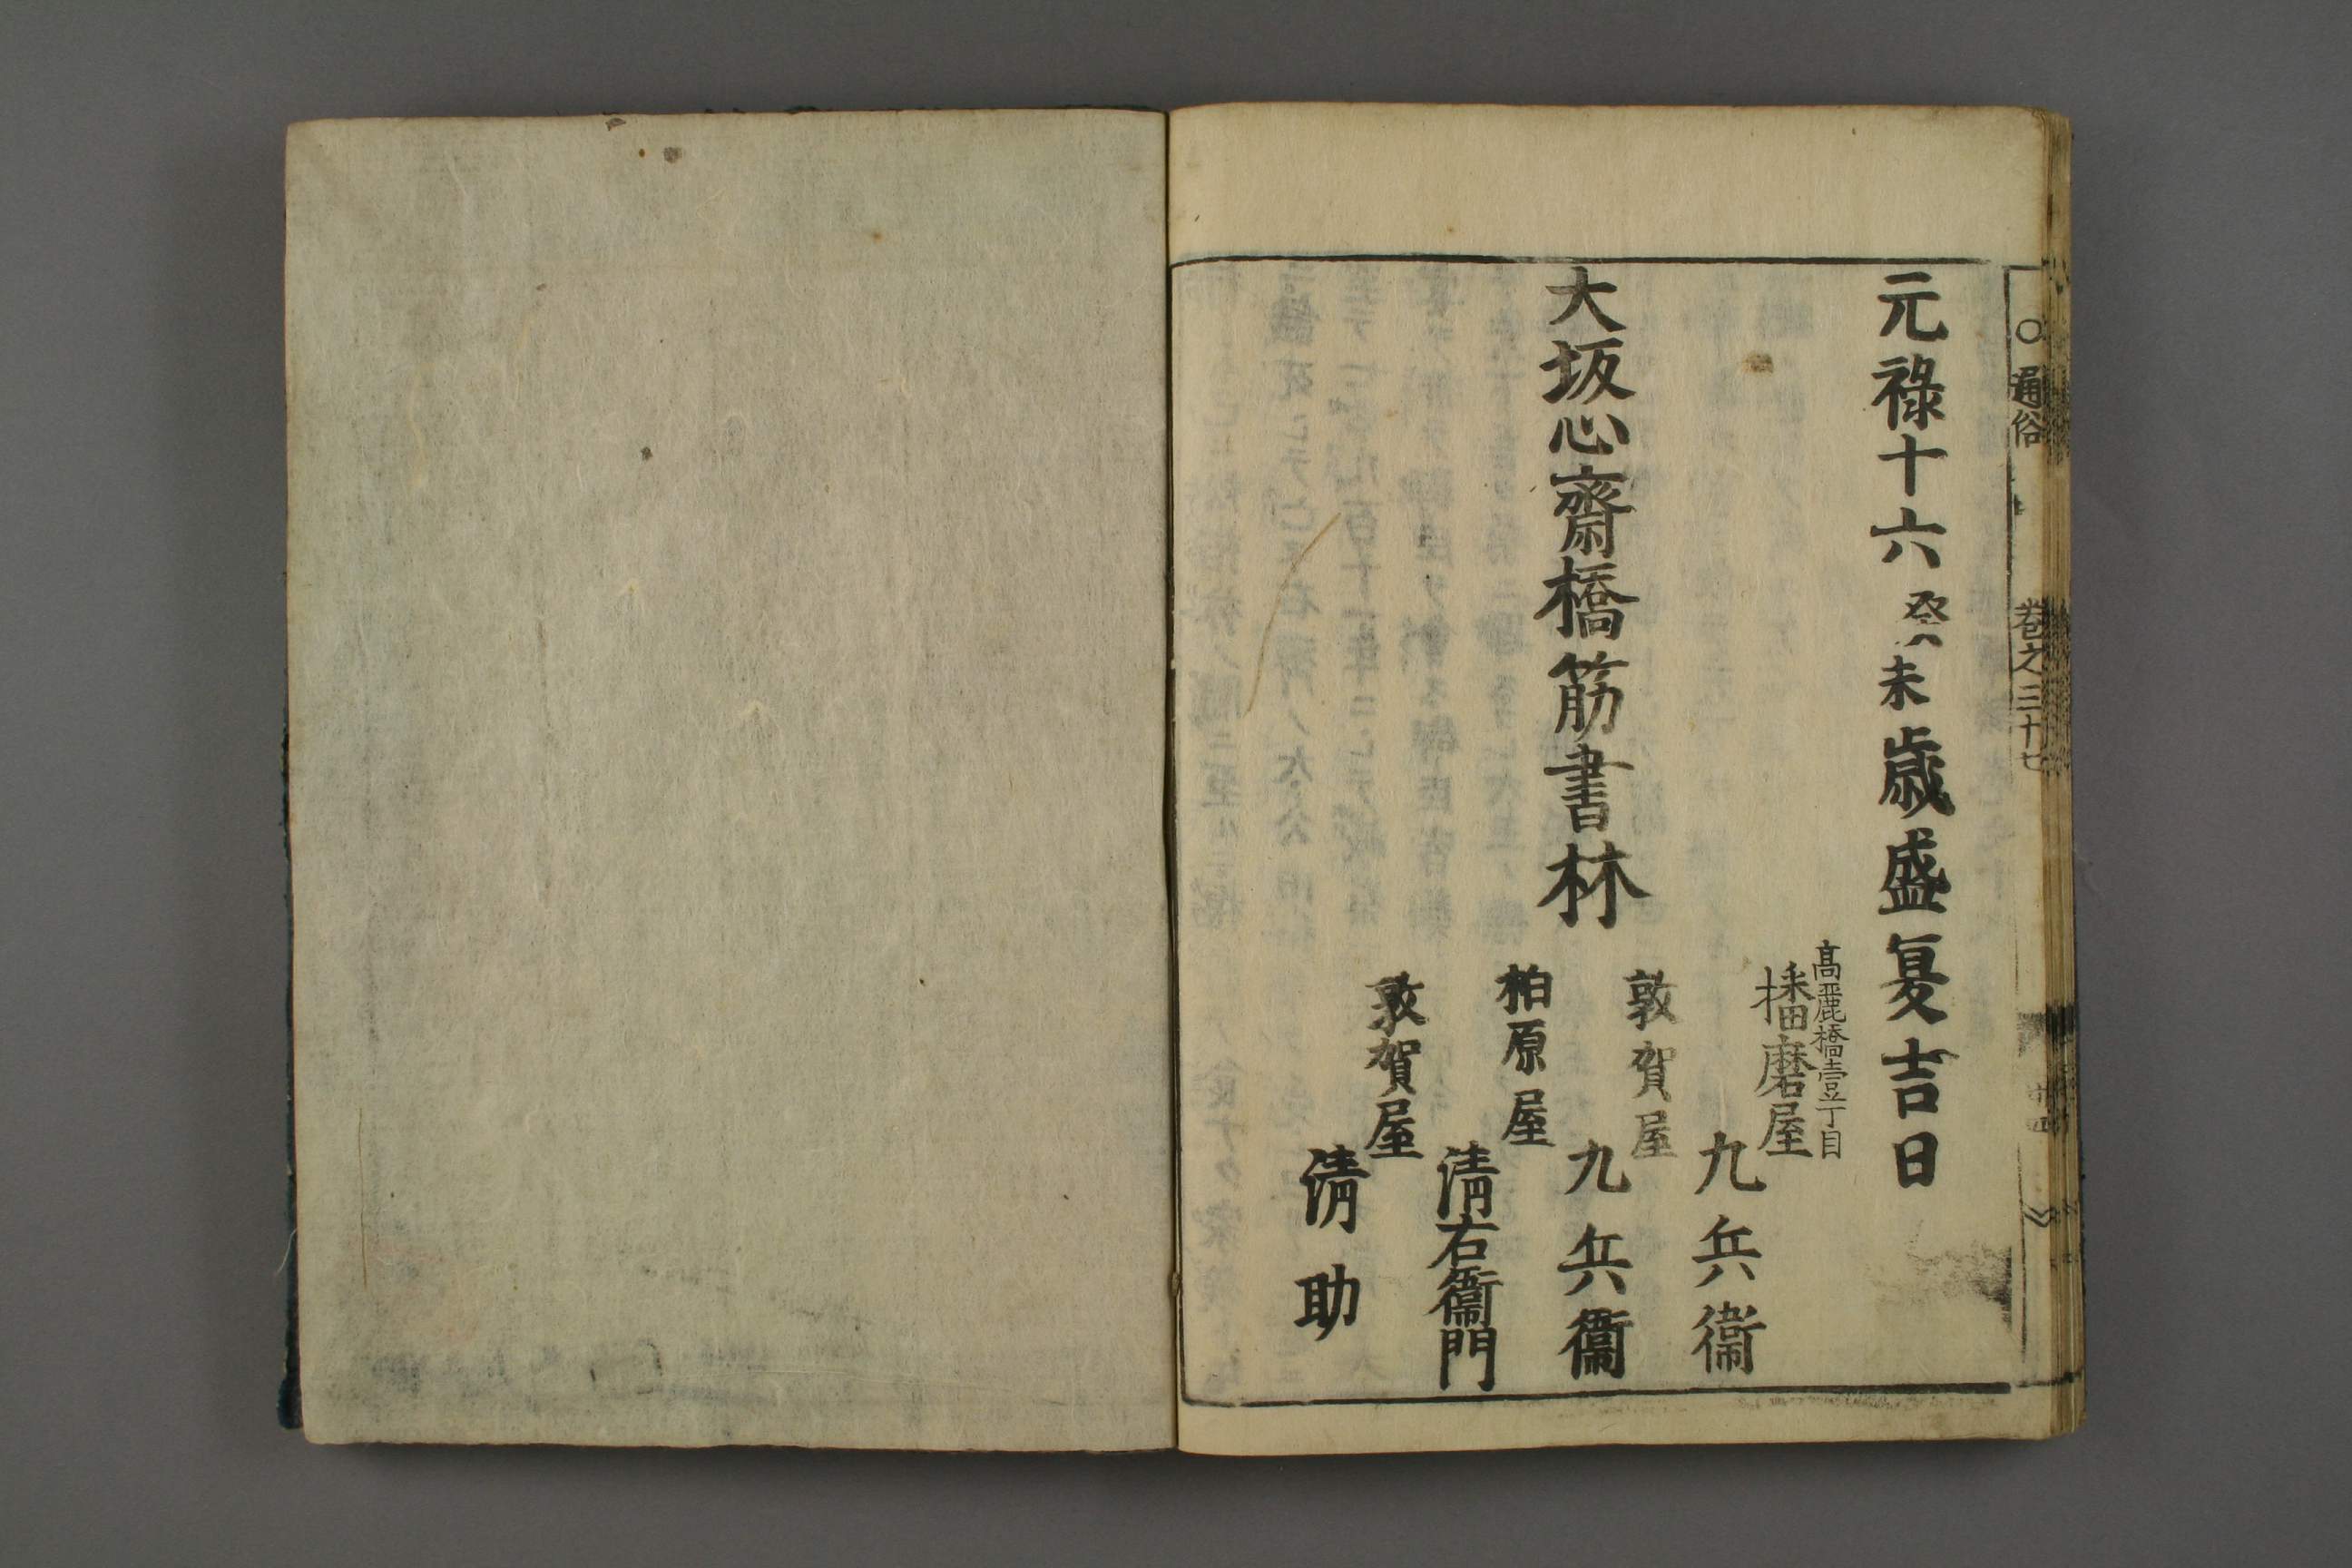 ○通俗 卷之三十七
元祿十六癸未歳盛夏吉日
高麗橋壹丁目
播磨屋九兵衞
敦賀屋九兵衞
大坂心齋橋筋書林
柏原屋清右衞門
敦賀屋清助